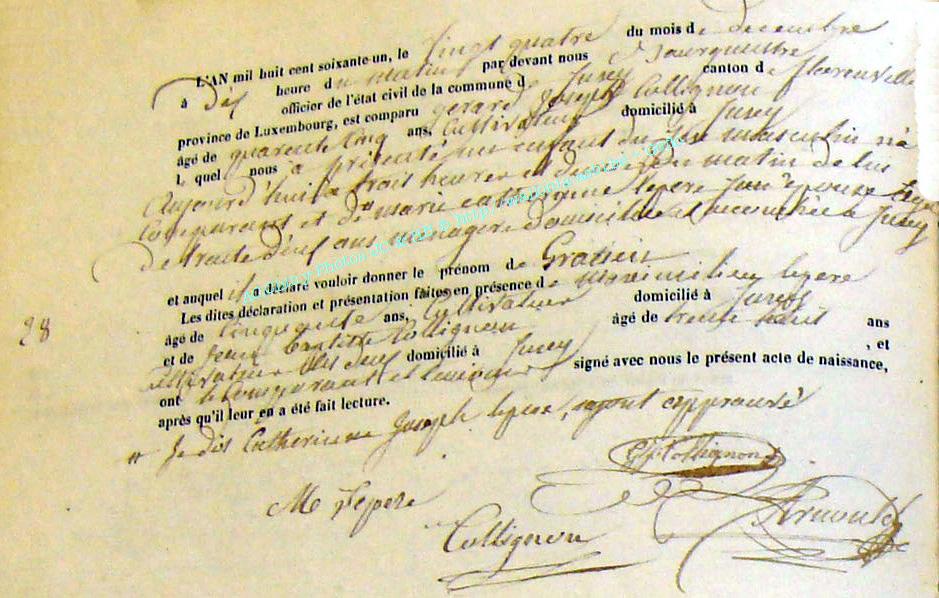 L'AN mil huit cent soixante-un, le vingt quatre du mois de decembre
à dix heure du matin par devant nous
officier de l'état civil de la commune de Jurey canton de florenville
province de Luxembourg, est comparu gerard Joseph Collignon
âgé de quarente Cinq ans, Cultivateur domicilié à Jurey
l quel nous a présenté un enfant du sexe masculin né
Aujourd'hui a trois heures et demie du matin de lui
Comparant et de marie catherine lepere son épouse agée
de trente deux ans ménagere domiciliée et accouchée a Jurey
et auquel il a déclaré vouloir donner le prénom de Gratien
Les dites déclaration et présentation faites en présence de Maximilien lepere
âgé de Cinquante ans, Cultivateur domicilié à Jurey
et de Jean Baptiste Collignon âgé de trente huit ans
cultivateur domicilié à Jurey , et
ont le comparant et temoins signé avec nous le présent acte de naissance,
après qu'il leur en a été fait lecture.
28
Je dis Catherine Joseph lepere, ajout approuvé
GJ Collignon
M Lepere
Collignon